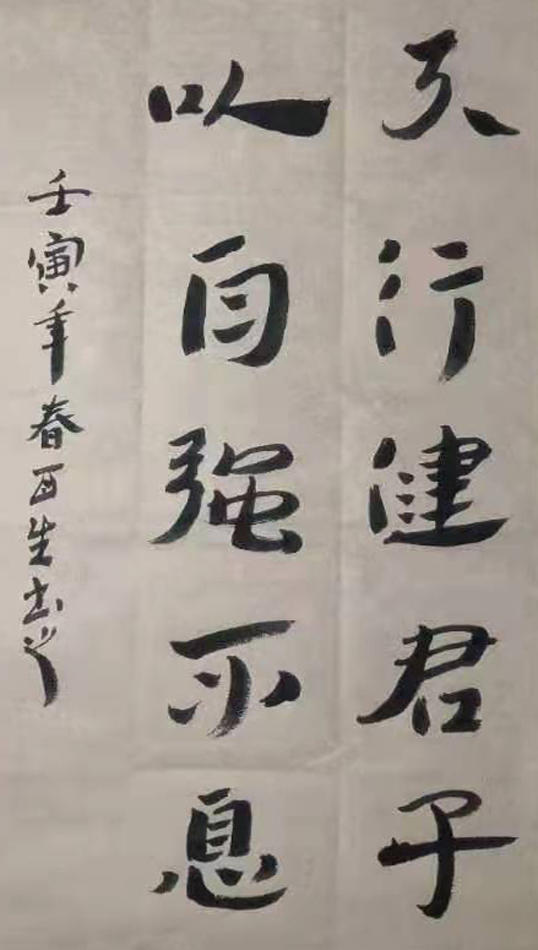 天行健君子
以自强不息
壬寅年春百生书